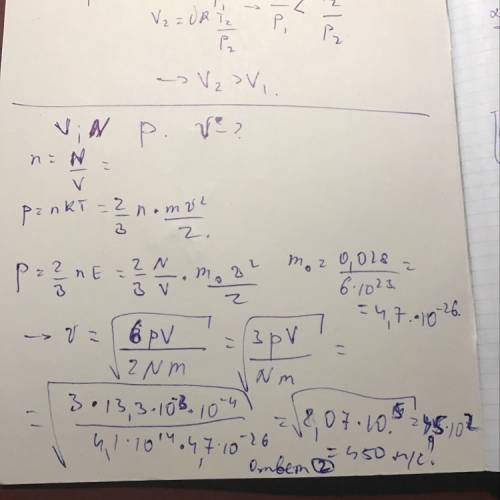 V₂ = νR T₂/P₂ → /P₁ < /P₂
→ V₂ > V₁.
V; N p. v - ?
n = N/V =
p = nkT = 2/3 n · mv²/2.
p = 2/3 nE = 2/3 N/V · m₀ v²/2 m₀ = 0,028/6·10²³ =
= 4,7·10⁻²⁶.
→ v = √(6pV/2Nm) = √(3pV/Nm) =
= √(3·13,3·10⁻³·10⁻⁴/4,1·10¹⁴·4,7·10⁻²⁶) = √(2,07·10⁵) = 4,5·10²
= 450 м/с
ответ 2